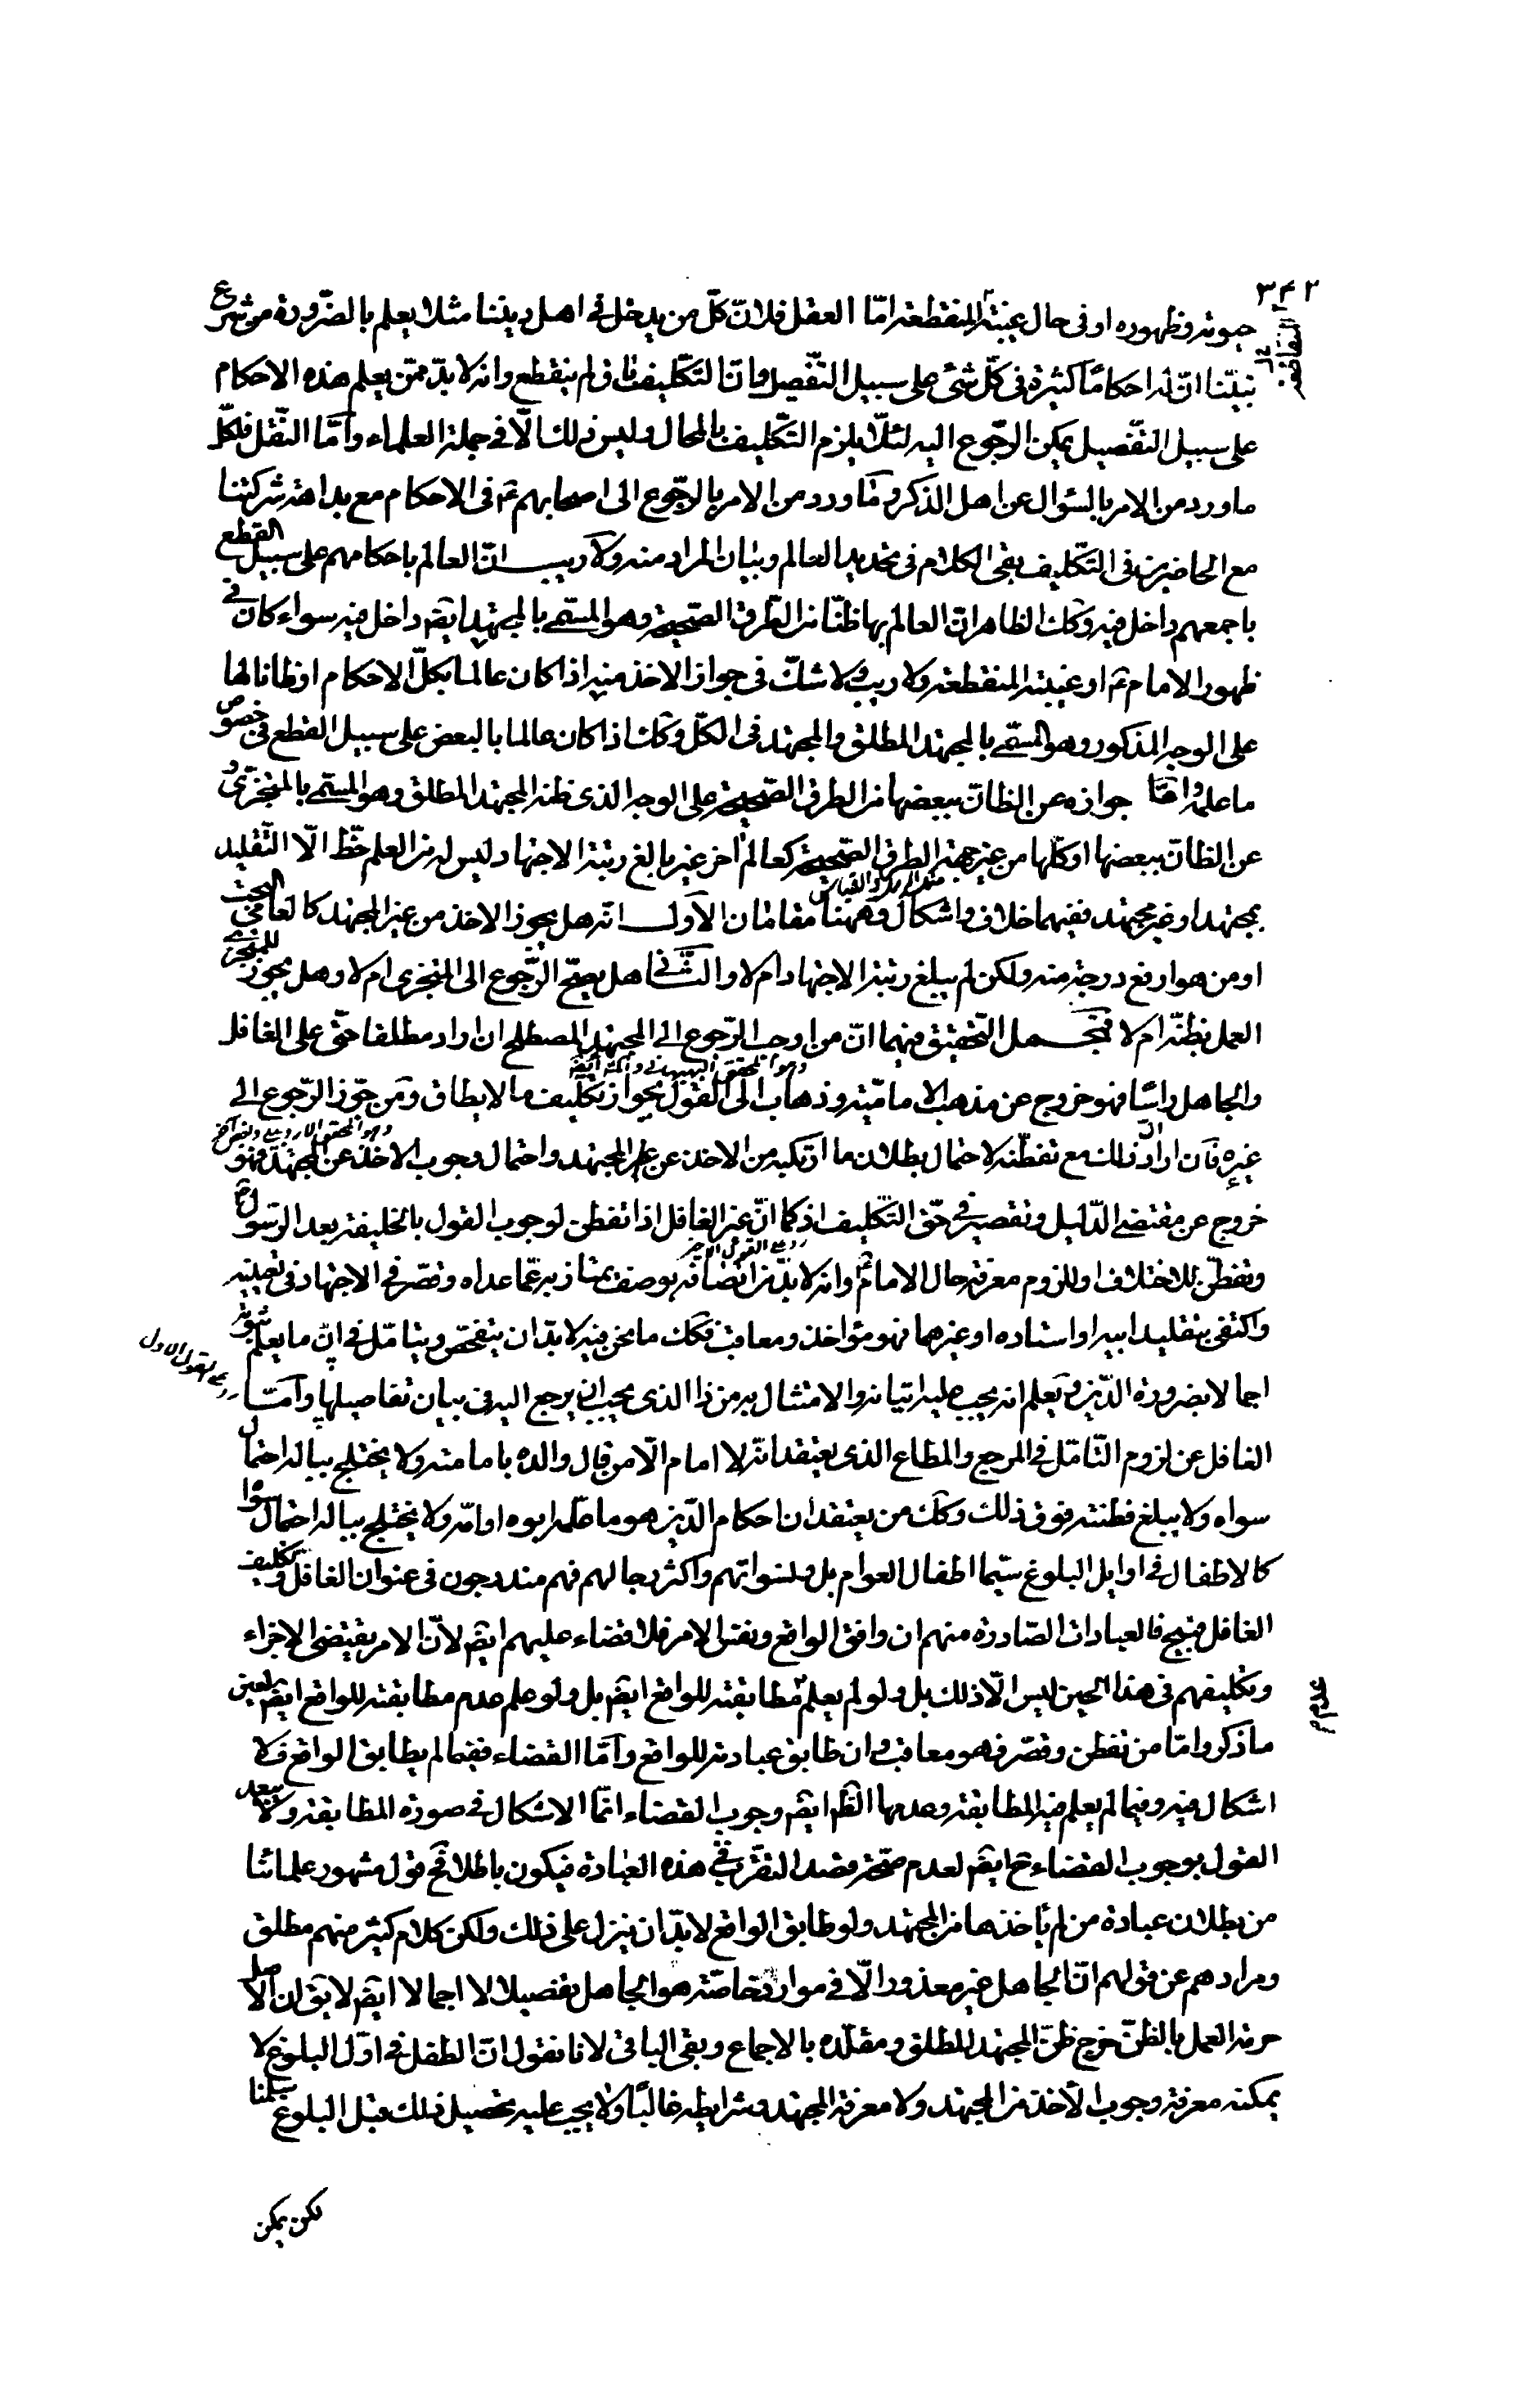 ٣۴٢
حيوته وظهوره او فى حال غيبته المنقطعة امّا العقل فلانّ كلّ من يدخل فى اهل ديننا مثلا يعلم بالضّرورة من شرع
نبيّنا انّ له احكامًا كثيرة فى كلّ شئ على سبيل التّفصيل وانّ التّكليف باق لم ينقطع وانه لابدّ ممّن يعلم هذه الاحكام
على سبيل التّفصيل يمكن الرّجوع اليه لئلّا يلزم التّكليف بالمحال وليس ذلك الّا فى جملة العلماء وامّا النّقل فلكلّ
ما ورد من الامر بالسّؤال عن اهل الذكر وما ورد من الامر بالرّجوع الى اصحابهم ع فى الاحكام مع بداهة شركتنا
مع الحاضرين فى التّكليف بقى الكلام فى تحديد العالم وبيان المراد منه ولا ريب انّ العالم باحكامهم على سبيل القطع
باجمعهم داخل فيه وكك الظاهر انّ العالم بها ظنّا من الطّرق الصّحيحة وهو المسمّى بالمجتهد ايضم داخل فيه سواء كان فى
ظهور الامام ع او غيبته المنقطعة ولا ريب ولا شكّ فى جواز الاخذ منه اذا كان عالما بكلّ الاحكام او ظانا لها
على الوجه المذكور وهو المسمّى بالمجتهد المطلق والمجتهد فى الكلّ وكك اذا كان عالما بالبعض على سبيل القطع فى خصوص
ما علمه وامّا جوازه عن الظانّ ببعضها من الطرق الصّحيحة على الوجه الذى ظنه المجتهد المطلق وهو المسمى بالمتجزّى و
عن الظانّ ببعضها او كلّها من غير جهة الطرق الصّحيحة كعالم اخر غير بالغ رتبة الاجتهاد وليس له من العلم حظّ الّا التّقليد
بمجتهد او غير مجتهد ففيهما خلاف واشكال وههنا مقامان الاوّل انّه هل يجوز الاخذ من غير المجتهد كالعامى البحت
او من هو ارفع درجة منه ولكن لم يبلغ رتبة الاجتهاد ام لا والثّانى هل يصحّ الرّجوع الى المتجزى ام لا وهل يجوز للمتجزى
العمل بظنّه ام لا فمجمل التّحقيق فيهما انّ من اوجب الرّجوع الى المجتهد المصطلح ان اراد مطلقا حتّى على الغافل
وهو المحقق البهبهانى
والجاهل راسًا فهو خروج عن مذهب الاماميّة وذهاب الى القول بجواز تكليف ما لا يطاق ومن جوّز الرّجوع الى
وهو المحقق الاردبيلى
غيره فان اراد ذلك مع تفطّنه لاحتمال بطلان ما ارتكبه من الاخذ عن غير المجتهد واحتمال وجوب الاخذ عن المجتهد فهو
خروج عن مقتضى الدّليل وتقصير فى حقّ التّكليف اذ كما انّ غير الغافل اذا تفطن لوجوب القول بالخليفة بعد الرّسول ص
وتفطّن للاختلاف وللزوم معرفة حال الامام ع وانه لابدّ من اتّصافه بوصف يمتاز به عمّا عداه وقصّر فى الاجتهاد فى تعيينه
واكتفى بتقليد ابيه او استاده او غيرهما فهو مؤاخذ ومعاقب فكك ما نحن فيه لابدّ ان يتفحّص ويتامّل فى انّ ما يعلم ثبوته
اجمالا بضرورة الدّين ويعلم انه يجب عليه اتيانه والامتثال به من ذا الذى يجب ان يرجع اليه فى بيان تفاصيلها وامّا
الغافل عن لزوم التّامّل فى المرجع والمطاع الذى يعتقد انّه لا امام الّا من قال والده بامامته ولا يختلج بباله احتمال
سواه ولا يبلغ فطنته فوق ذلك وكك من يعتقد ان احكام الدّين هو ما علّمه ابوه او امّه ولا يختلج بباله احتمال سواه
كالاطفال فى اوايل البلوغ سيّما اطفال العوام بل ونسوانهم واكثر رجالهم فهم مندرجون فى عنوان الغافل وتكليف
الغافل قبيح فالعبادات الصّادرة منهم ان وافق الواقع ونفس الامر فلا قضاء عليهم ايضم لانّ الامر يقتضى الاجزاء
وتكليفهم فى هذا الحين ليس الّا ذلك بل ولو لم يعلم مطابقته للواقع ايضم بل ولو علم عدم مطابقته للواقع ايضم لعين
ما ذكر وامّا من تفطن وقصّر فهو معاقب وان طابق عبادته للواقع وامّا القضاء ففيما لم يطابق الواقع فلا
اشكال فيه وفيما لم يعلم فيه المطابقة وعدمها الظم ايضم وجوب القضاء انّما الاشكال فى صورة المطابقة ولا يبعد
القول بوجوب القضاء ح ايضم لعدم صحّة قصد التقرّب فى هذه العبادة فيكون باطلا فح قول مشهور علمائنا
من بطلان عبادة من لم ياخذها من المجتهد ولو طابق الواقع لابدّ ان ينزل على ذلك ولكن كلام كثير منهم مطلق
ومرادهم عن قولهم انّ الجاهل غير معذور الّا فى موارد خاصّة هو الجاهل تفصيلا لا اجمالا ايضم لا يقم ان الاصل
حرمة العمل بالظنّ خرج ظنّ المجتهد المطلق ومقلّده بالاجماع وبقى الباقى لانا نقول انّ الطفل فى اوّل البلوغ لا
يمكنه معرفة وجوب الاخذ من المجتهد ولا معرفة المجتهد وشرايطه غالبًا ولا يجب عليه تحصيل ذلك قبل البلوغ سلّمنا
لكن يمكن